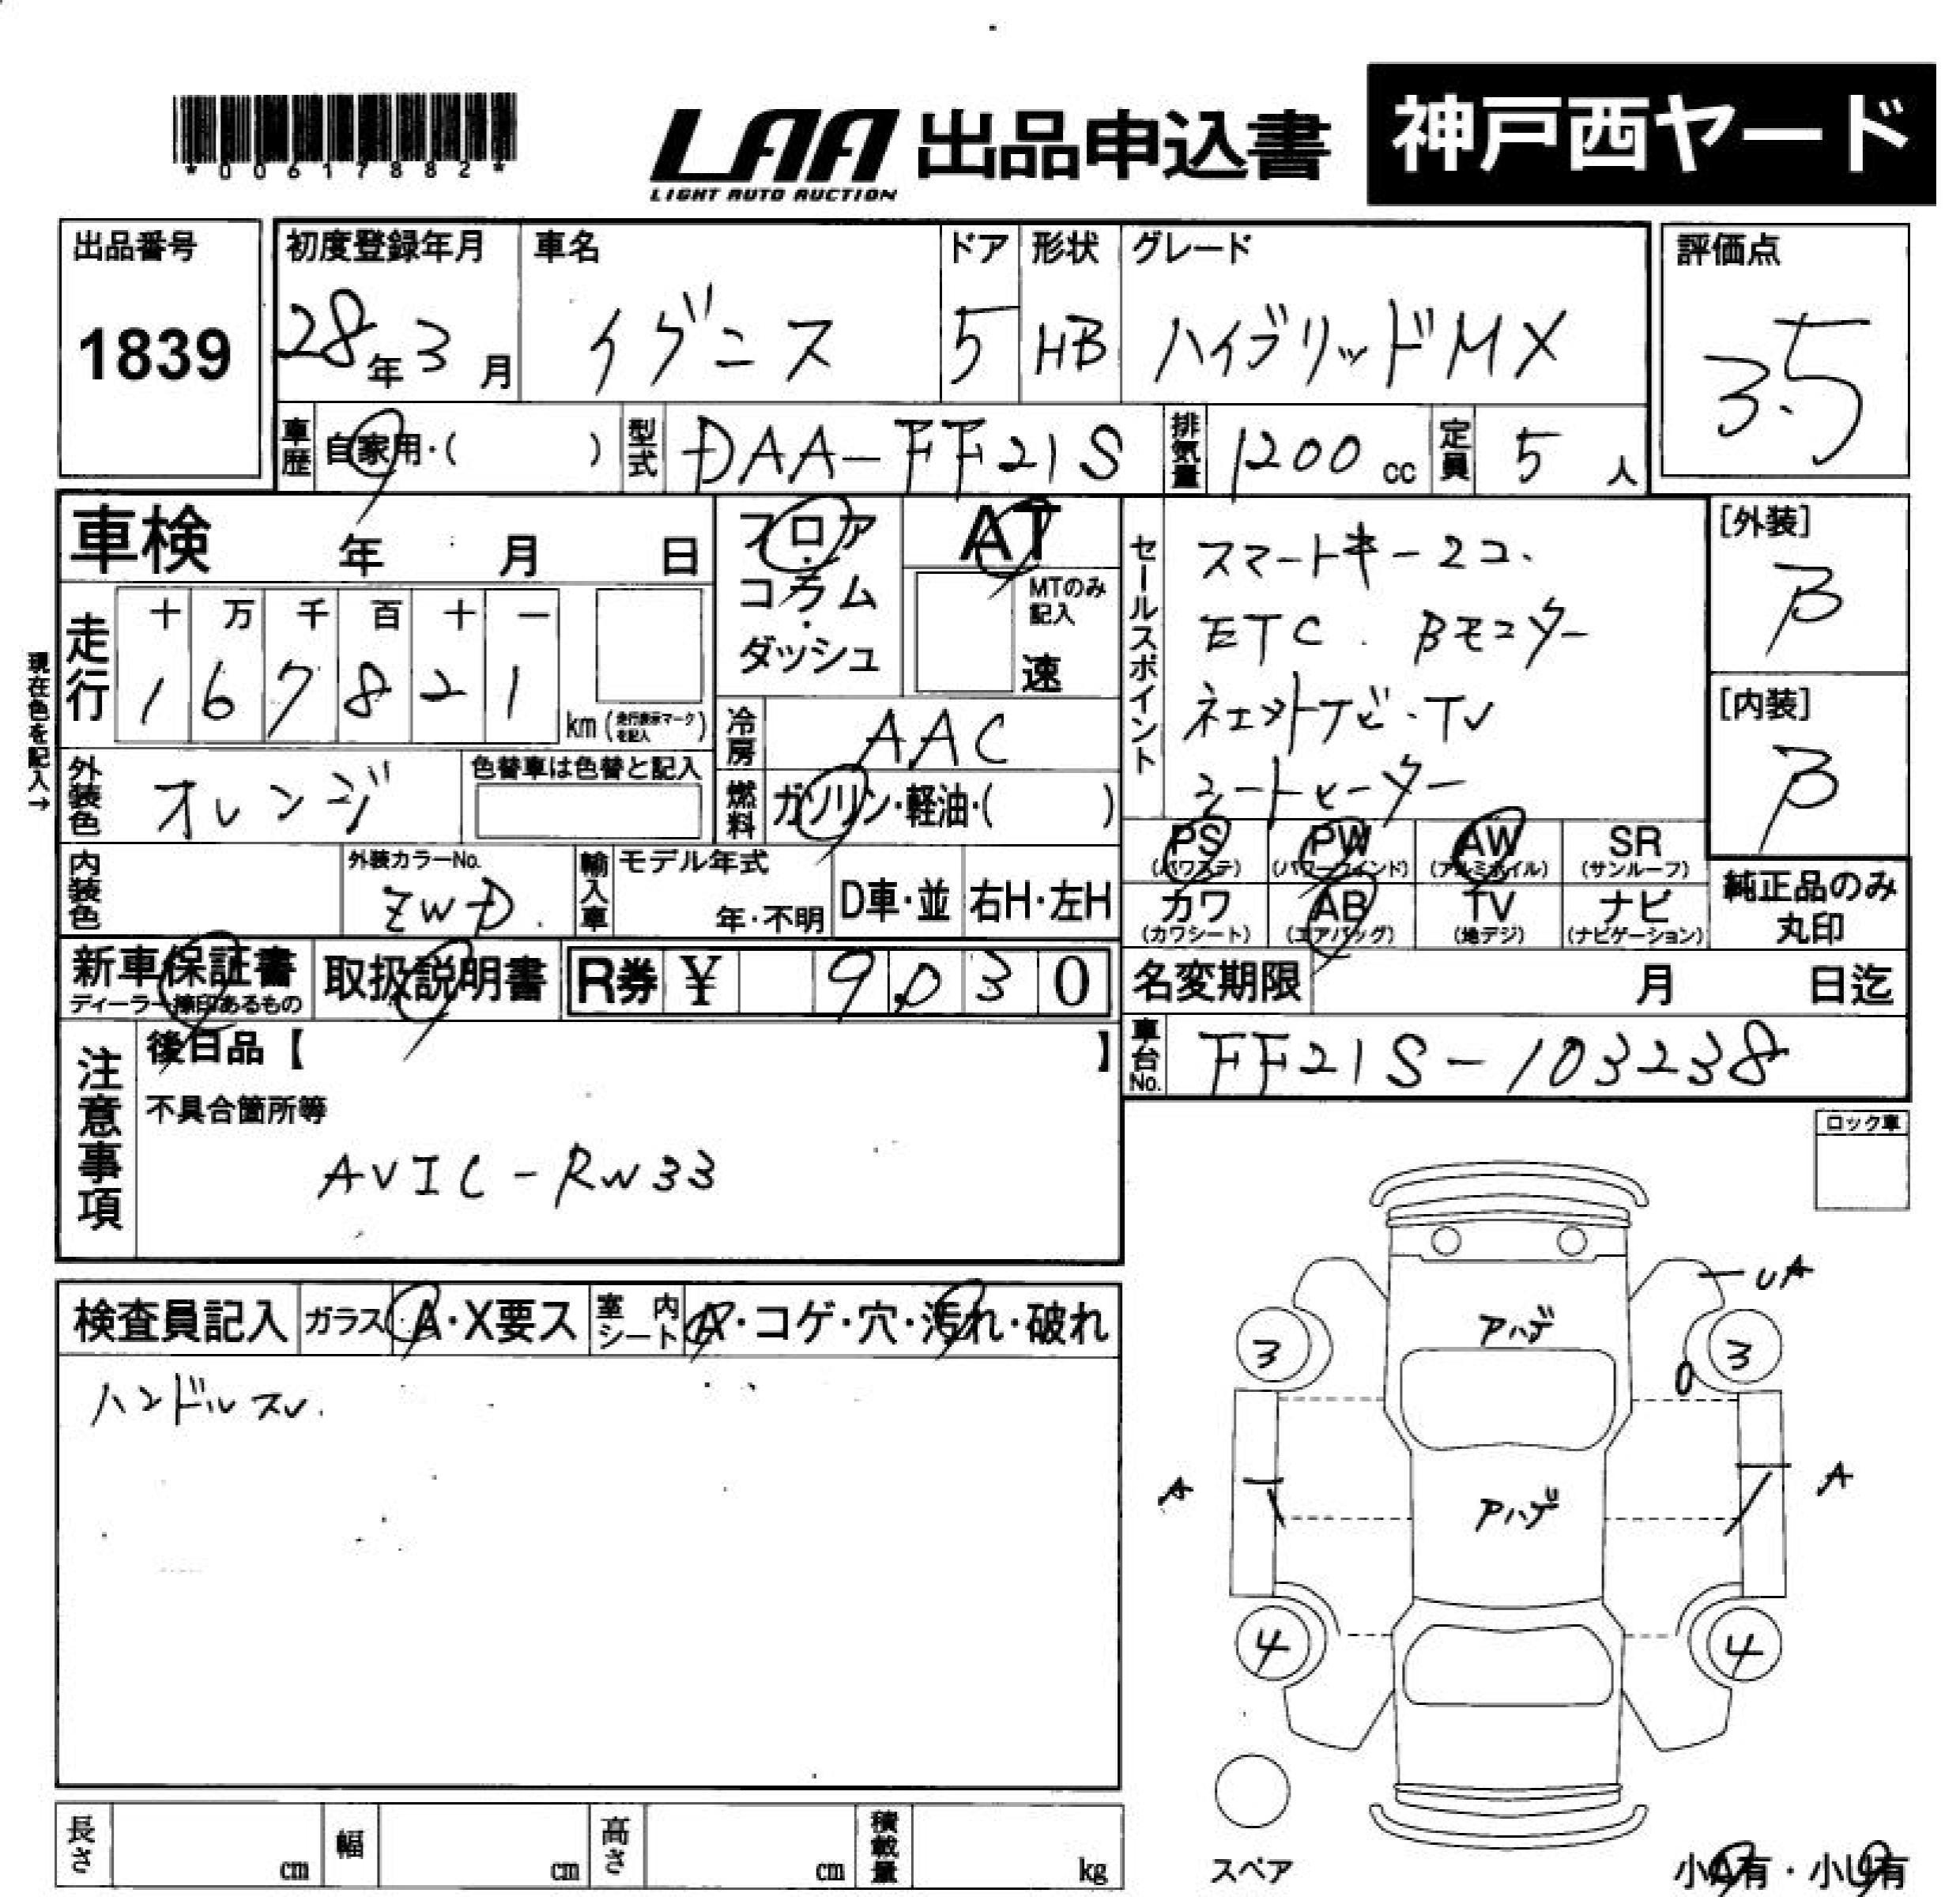 *00617882*
LAA 出品申込書 神戸西ヤード
LIGHT AUTO AUCTION
出品番号 初度登録年月 車名 ドア 形状 グレード 評価点
1839 28年3月 イグニス 5 HB ハイブリッドMX 3.5
車歴 自家用・( ) 型式 DAA-FF21S 排気量 1200cc 定員 5人
車検 年 月 日 フロア・コラム・ダッシュ AT
MTのみ記入 速
現在色を記入→
走行 十 万 千 百 十 一
1 6 7 8 2 1 km(走行表示マークを記入)
冷房 AAC
外装色 オレンジ 色替車は色替と記入
燃料 ガソリン・軽油・( )
セールスポイント
スマートキー2コ.
ETC. Bモニター
ネェットナビ・TV
シートヒーター
[外装]
B
[内装]
B
PS(パワステ) PW(パワーウィンド) AW(アルミホイル) SR(サンルーフ)
カワ(カワシート) AB(エアバッグ) TV(地デジ) ナビ(ナビゲーション)
純正品のみ丸印
内装色 外装カラーNo. ZWD. 輸入車 モデル年式 年・不明 D車・並 右H・左H
新車保証書 ディーラー捺印あるもの 取扱説明書 R券 ¥ 9,030
名変期限 月 日迄
車台No. FF21S-103238
注意事項
後日品【 】
不具合箇所等
AVIC-RW33
ロック車
検査員記入 ガラス A・X要ス 室内シート A・コゲ・穴・汚れ・破れ
ハンドルスレ.
UA
アハゲ
3 3
0
アハゲ
A A
4 4
スペア
小A有・小U有
長さ cm 幅 cm 高さ cm 積載量 kg